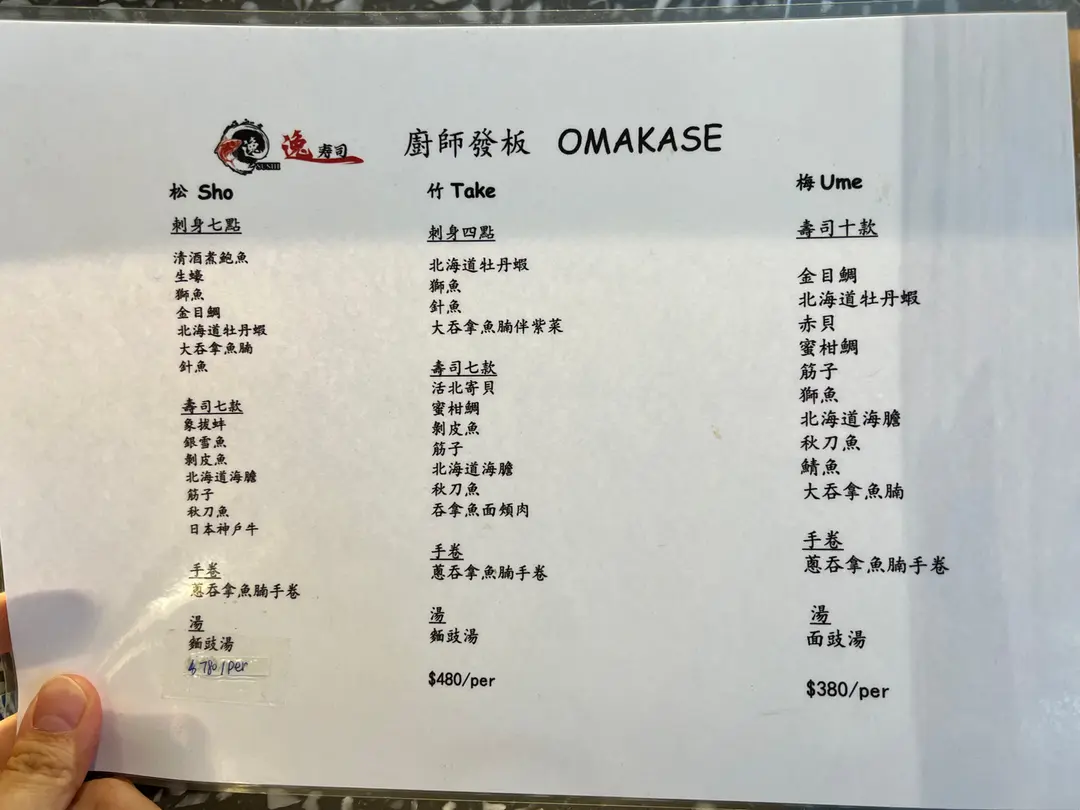 逸 SUSHI 逸 寿司 廚師發板 OMAKASE
松 Sho
刺身七點
清酒煮鮑魚
生蠔
獅魚
金目鯛
北海道牡丹蝦
大吞拿魚腩
針魚
壽司七款
象拔蚌
銀雪魚
剝皮魚
北海道海膽
筋子
秋刀魚
日本神戶牛
手卷
蔥吞拿魚腩手卷
湯
麵豉湯
$780/per
竹 Take
刺身四點
北海道牡丹蝦
獅魚
針魚
大吞拿魚腩伴紫菜
壽司七款
活北寄貝
蜜柑鯛
剝皮魚
筋子
北海道海膽
秋刀魚
吞拿魚面頰肉
手卷
蔥吞拿魚腩手卷
湯
麵豉湯
$480/per
梅 Ume
壽司十款
金目鯛
北海道牡丹蝦
赤貝
蜜柑鯛
筋子
獅魚
北海道海膽
秋刀魚
鯖魚
大吞拿魚腩
手卷
蔥吞拿魚腩手卷
湯
面豉湯
$380/per